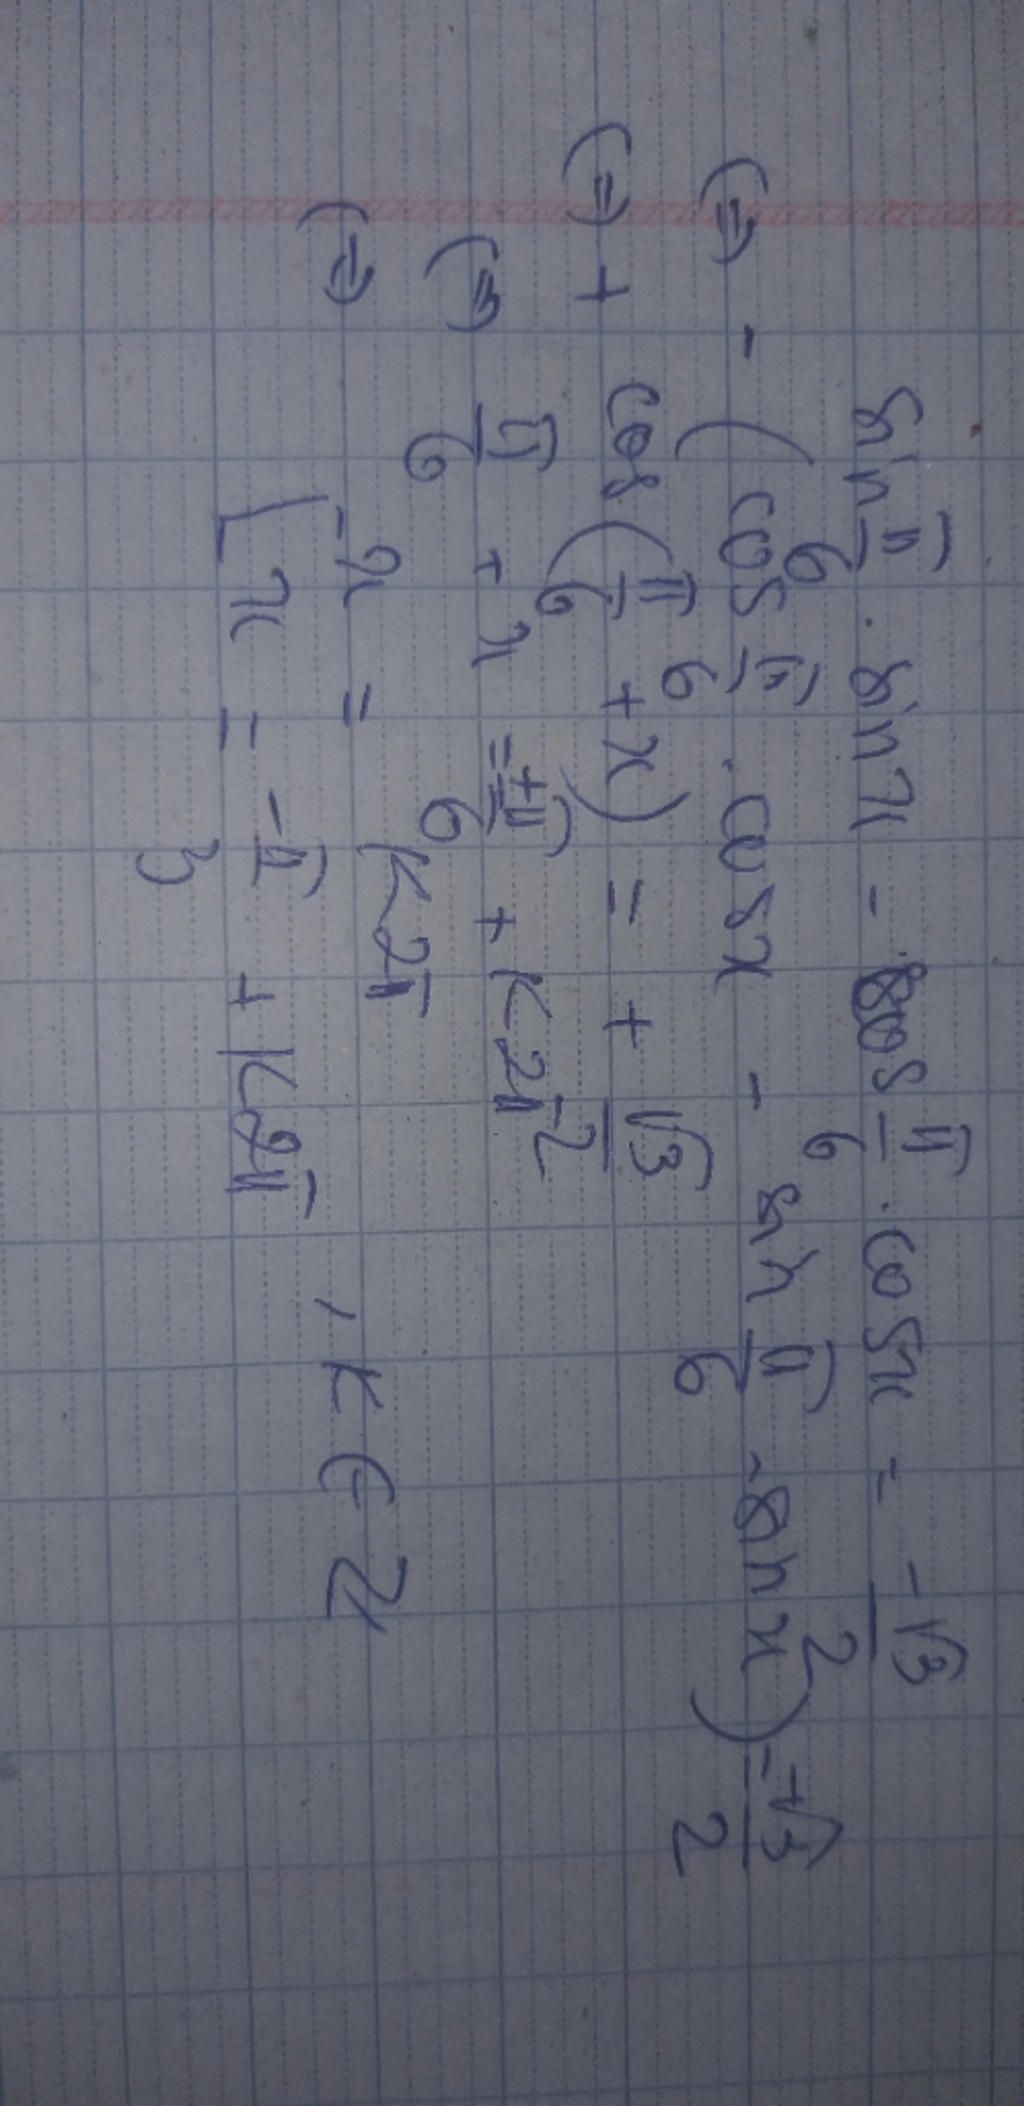 sin π/6 . sin x - cos π/6 . cos x = -√3/2
(=) - (cos π/6 . cos x - sin π/6 . sin x) = -√3/2
(=) + cos (π/6 + x) = + √3/2
(=) π/6 + x = ±π/6 + K2π
(=) [ x = K2π
x = -π/3 + K2π , K ∈ Z